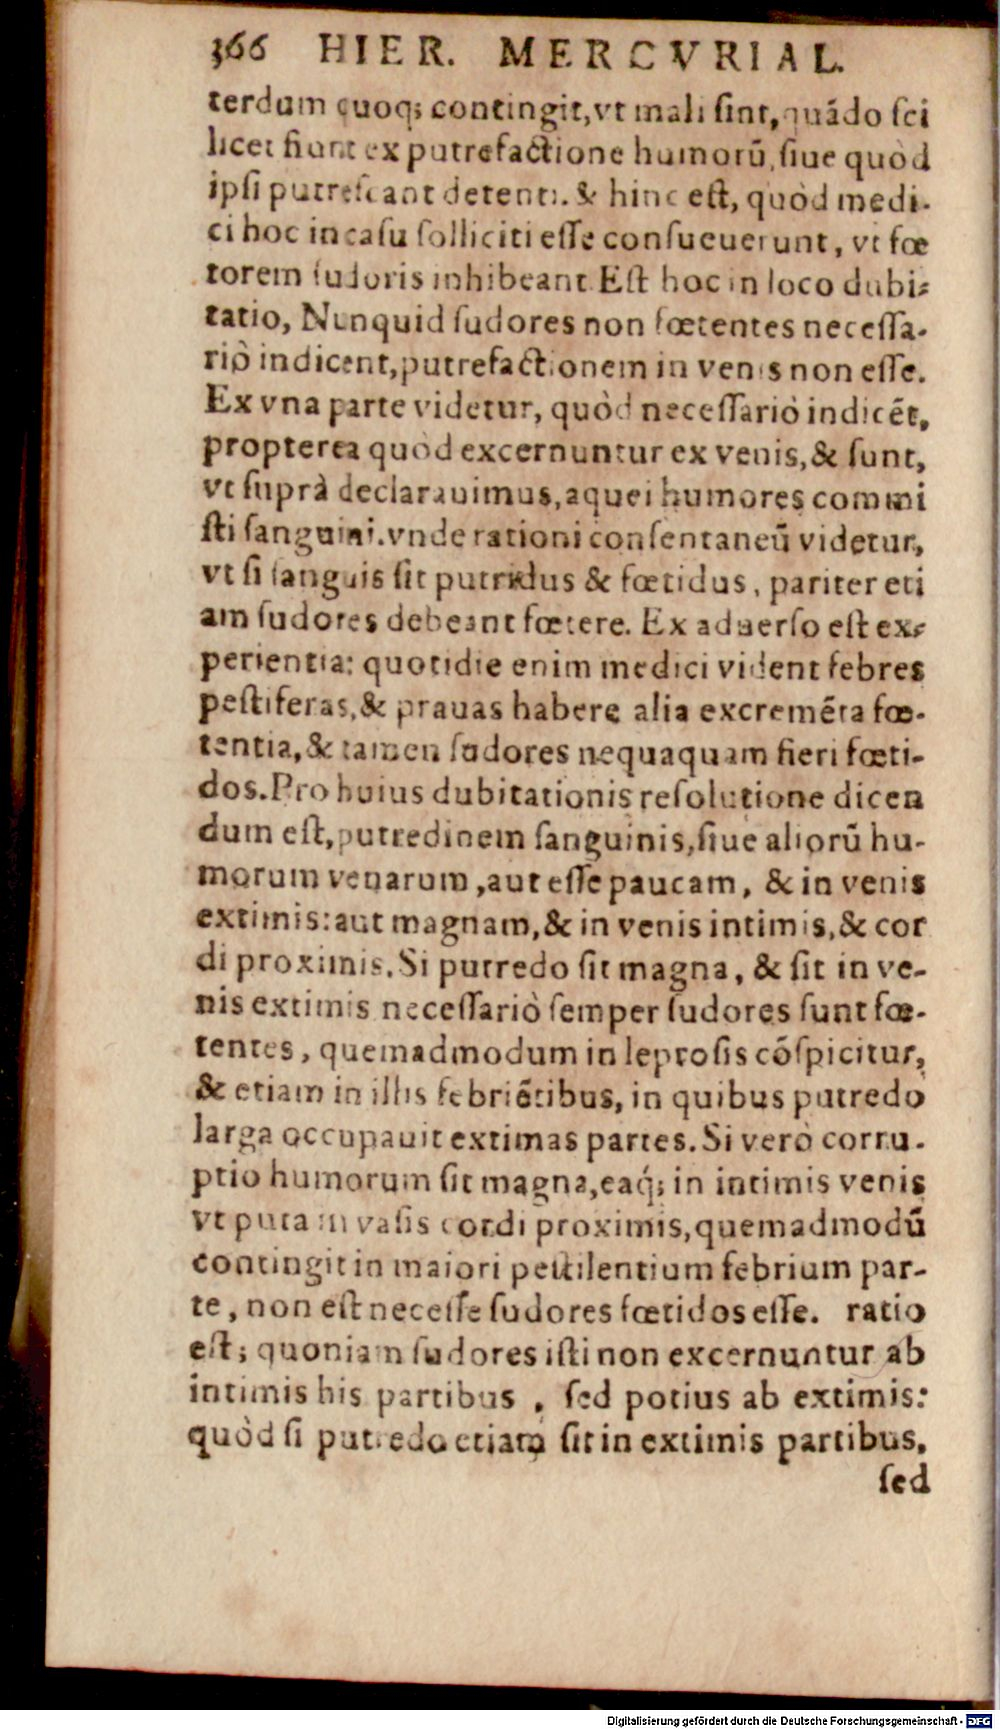 366 HIER. MERCVRIAL.
terdum quoq; contingit,vt mali sint, quãdo sci
licet fiunt ex putrefactione humorũ, siue quòd
ipsi putrescant detenti. & hinc est, quòd medi-
ci hoc in casu solliciti esse consueuerunt, vt fœ
torem sudoris inhibeant. Est hoc in loco dubi-
tatio, Nunquid sudores non fœtentes necessa-
riò indicent, putrefactionem in venis non esse.
Ex vna parte videtur, quòd necessariò indicẽt,
propterea quòd excernuntur ex venis, & sunt,
vt suprà declarauimus, aquei humores commi
sti sanguini. vnde rationi consentaneũ videtur,
vt si sanguis sit putridus & fœtidus, pariter eti
am sudores debeant fœtere. Ex aduerso est ex-
perientia: quotidie enim medici vident febres
pestiferas, & prauas habere alia excremẽta fœ-
tentia, & tamen sudores nequaquam fieri fœti-
dos. Pro huius dubitationis resolutione dicen
dum est, putredinem sanguinis, siue aliorũ hu-
morum venarum, aut esse paucam, & in venis
extimis: aut magnam, & in venis intimis, & cor
di proximis. Si putredo sit magna, & sit in ve-
nis extimis necessariò semper sudores sunt fœ-
tentes, quemadmodum in leprosis cõspicitur,
& etiam in illis febriẽtibus, in quibus putredo
larga occupauit extimas partes. Si verò corru-
ptio humorum sit magna, eaq́; in intimis venis
vt puta in vasis cordi proximis, quemadmodũ
contingit in maiori pestilentium febrium par-
te, non est necesse sudores fœtidos esse. ratio
est; quoniam sudores isti non excernuntur ab
intimis his partibus, sed potius ab extimis:
quòd si putredo etiam sit in extimis partibus,
sed
Digitalisierung gefördert durch die Deutsche Forschungsgemeinschaft - DFG